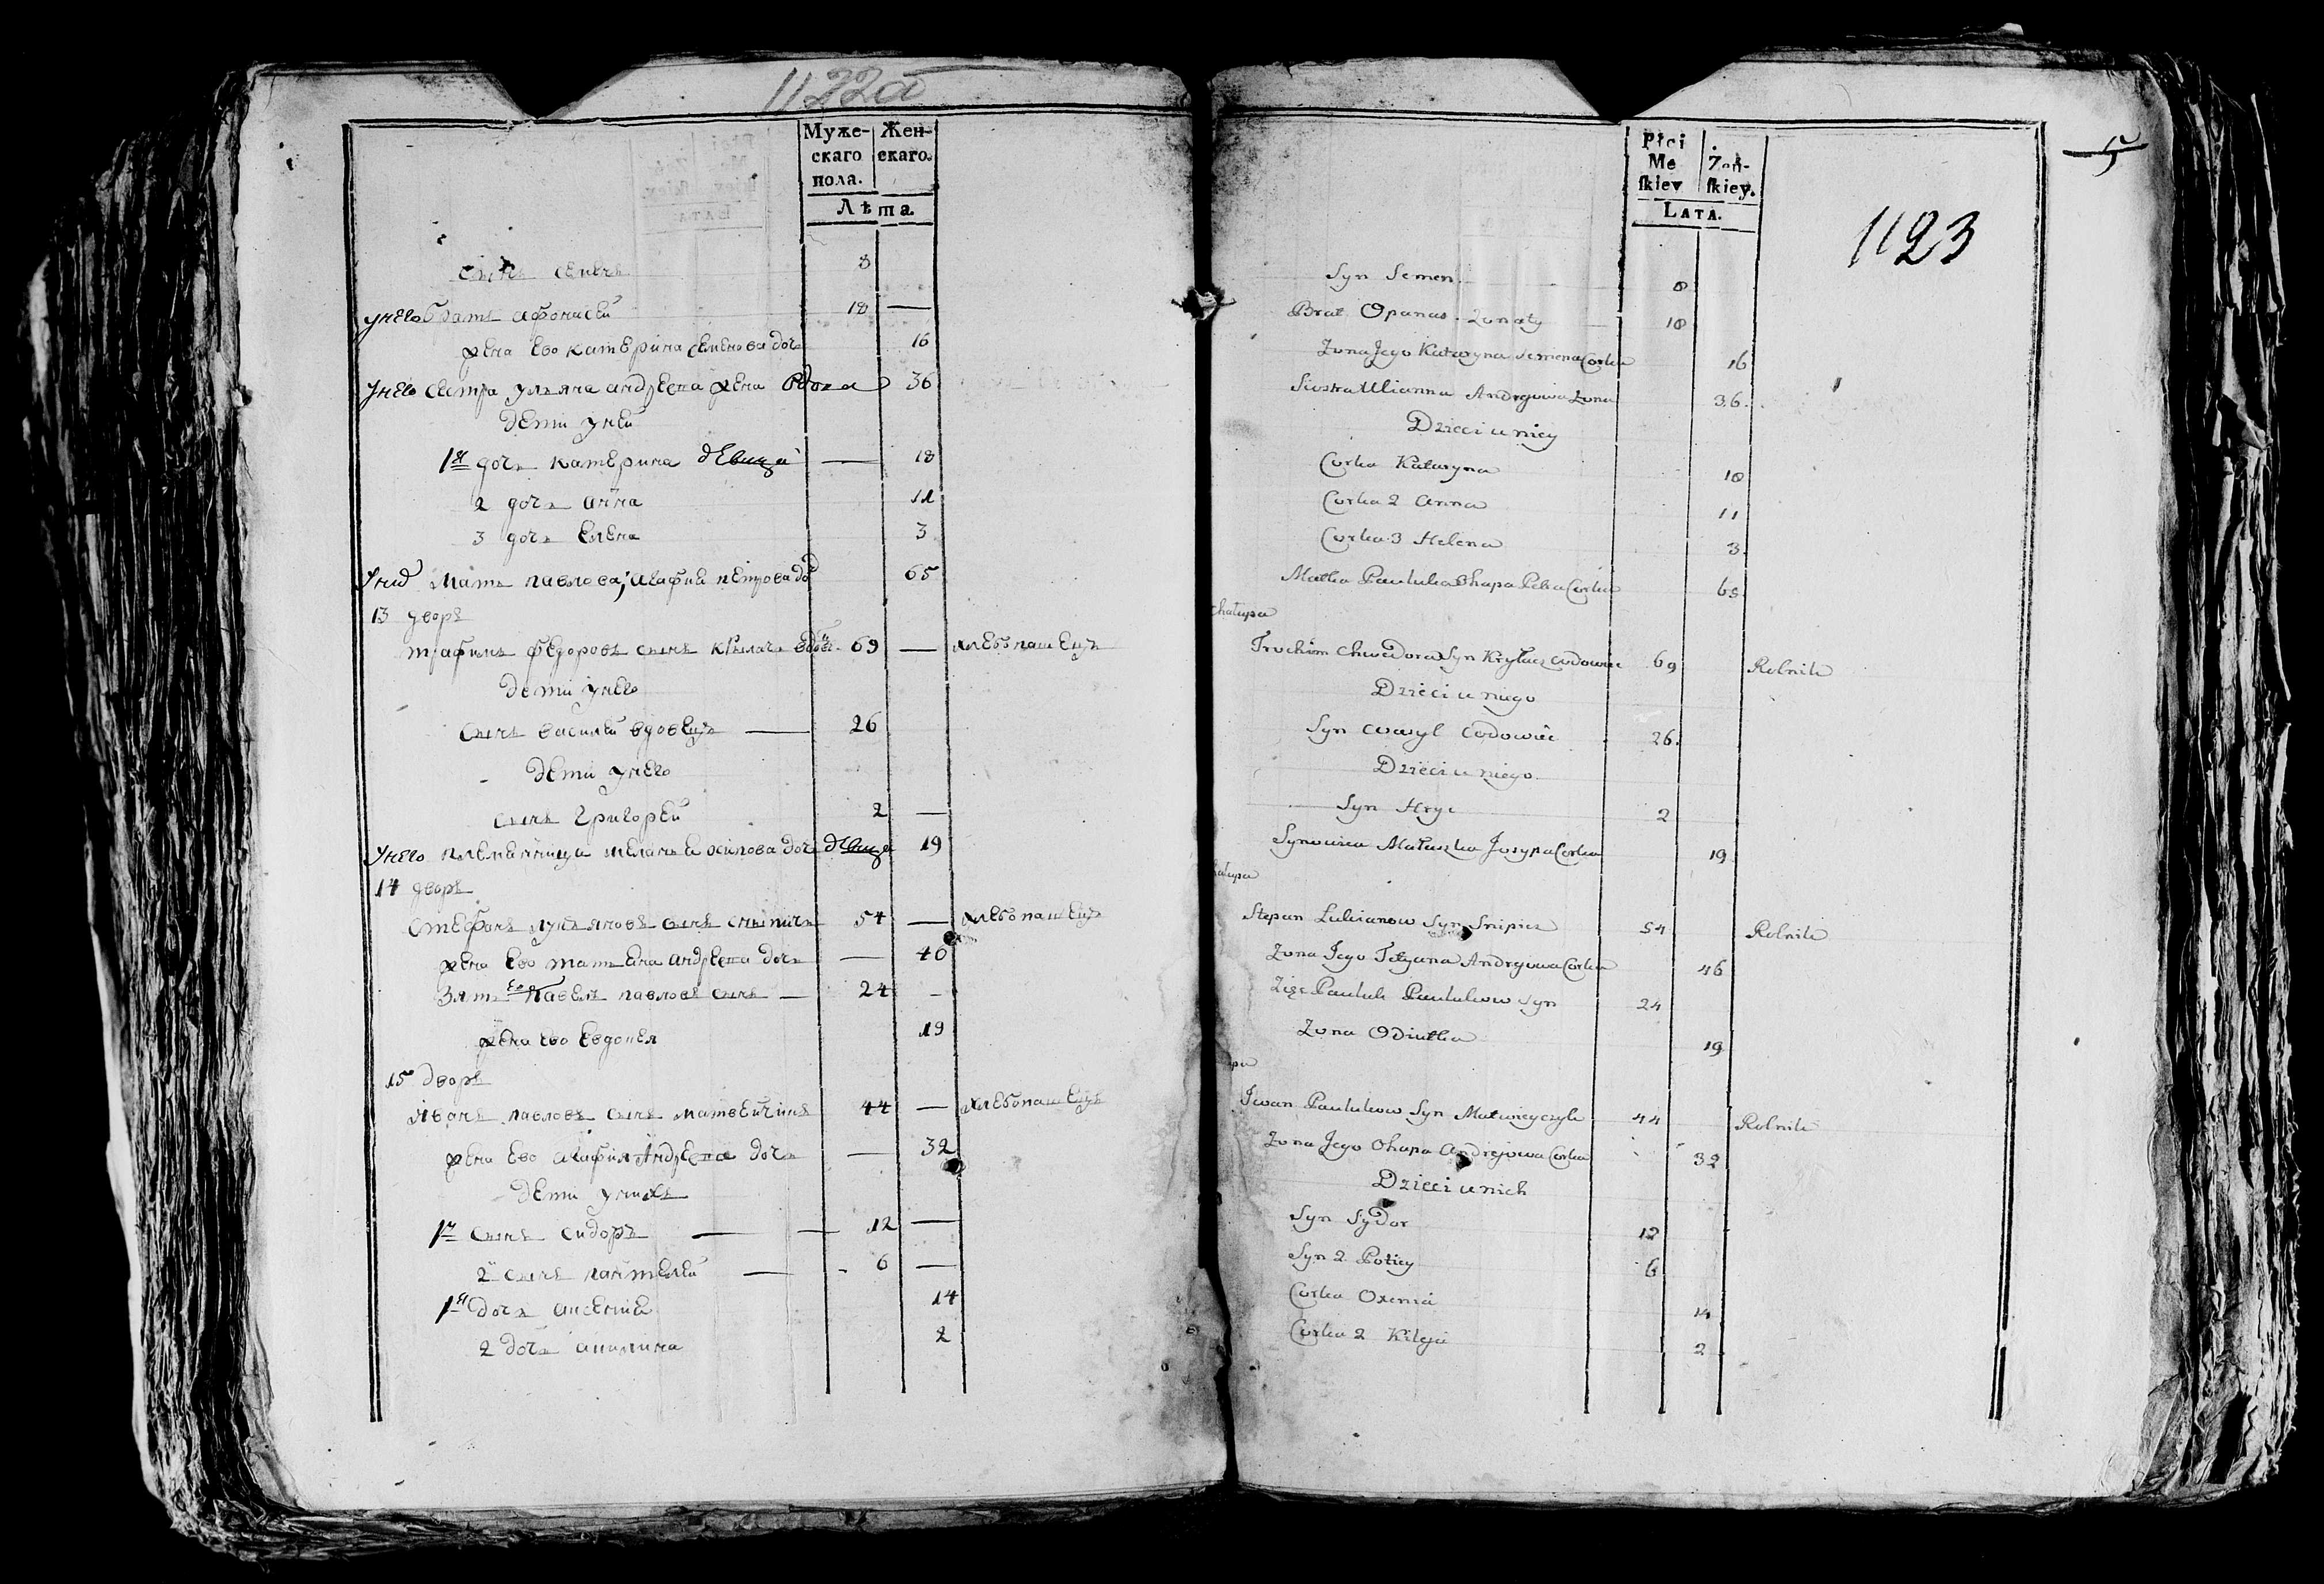 1122а
Муже-
скаго
пола.
Жен-
скаго.
Лѣта.
сынъ семенъ 8
унего братъ афонасей 18 —
жена ево катерина семенова дочь 16
унего сестра ульяна андреева жена вдова 36
дети уней
1я дочь катерина девица — 18
2 дочь анна 11
3 дочь елена 3
мать павлова агафия петрова до 65
13 дворъ
трафимъ федоровъ сынъ крылачь вдовъ 69 — хлебопашецъ
дети унего
сынъ василей вдовецъ — 26
дети унего
сынъ григорей 2 —
унего племянница осипова дочь девица 19
14 дворъ
стефанъ лукьяновъ сынъ снипичь 54 — хлебопашецъ
жена ево татьяна андреева дочь — 46
зять ево павелъ павловъ сынъ — 24 -
жена ево евдокея 19
15 дворъ
иванъ павловъ сынъ матвейчикъ 44 — хлебопашецъ
жена ево агафия андреева дочь — 32
дети унихъ
1й сынъ сидоръ — 12 —
2й сынъ пантелей — 6 —
1я дочь аксения 14
2 дочь акилина 2
Płci
Me
skiey
Zeń-
skiey.
Lata.
1123
Syn Semen 8
Brat Opanas Zonaty 18
Zona Jego Kataryna Semena Corka 16
Siostra Ulianna Andrejowa Zona 36.
Dzieci u niey
Corka Kataryna 18
Corka 2 Anna 11
Corka 3 Helena 3
Matka Pawluka Ohapa Petra Corka 65
chałupa
Trochim Chwedora Syn Krylacz Wdowiec 69 Rolnik
Dzieci u niego
Syn Wasyl Wdowiec 26.
Dzieci u niego
Syn Hryc 2
Synowica Małaszka Josypa Corka 19
Stepan Lukianow Syn Snipicz 54 Rolnik
Zona Jego Tetyana Andrejowa Corka 46
Zięc Pawluk Pawlukow Syn 24
Zona Odiutka 19
Iwan Pawlukow Syn Matwieyczyk 44 Rolnik
Zona Jego Ohapa Andrejowa Corka 32
Dzieci u nich
Syn Sydor 12
Syn 2 Potiey 6
Corka Oxenia 14
Corka 2 Kilyja 2